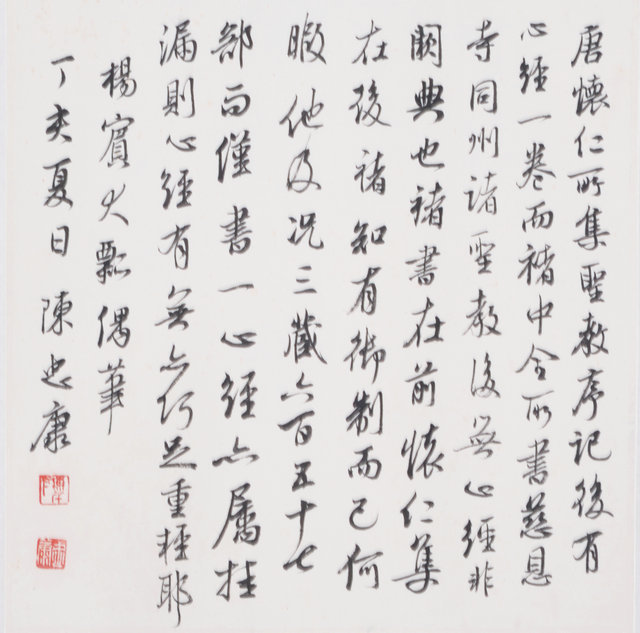 唐懷仁所集聖教序記後有
心經一卷而褚中令所書慈恩
寺同州諸聖教後無心經非
闕典也褚書在前懷仁集
在後褚知有御制而已何
暇他及况三藏六百五十七
部而僅書一心經亦屬挂
漏則心經有無亦何足重輕耶
楊賓大瓢偶筆
丁亥夏日 陳忠康